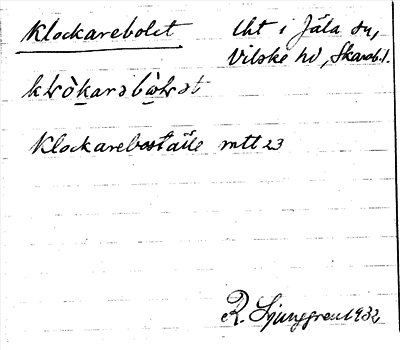 Klockarebolet
lht i Jäla sn,
Vilske hd, Skarab. l.
Klockareboställe mtt 23
R. Ljunggren 1932